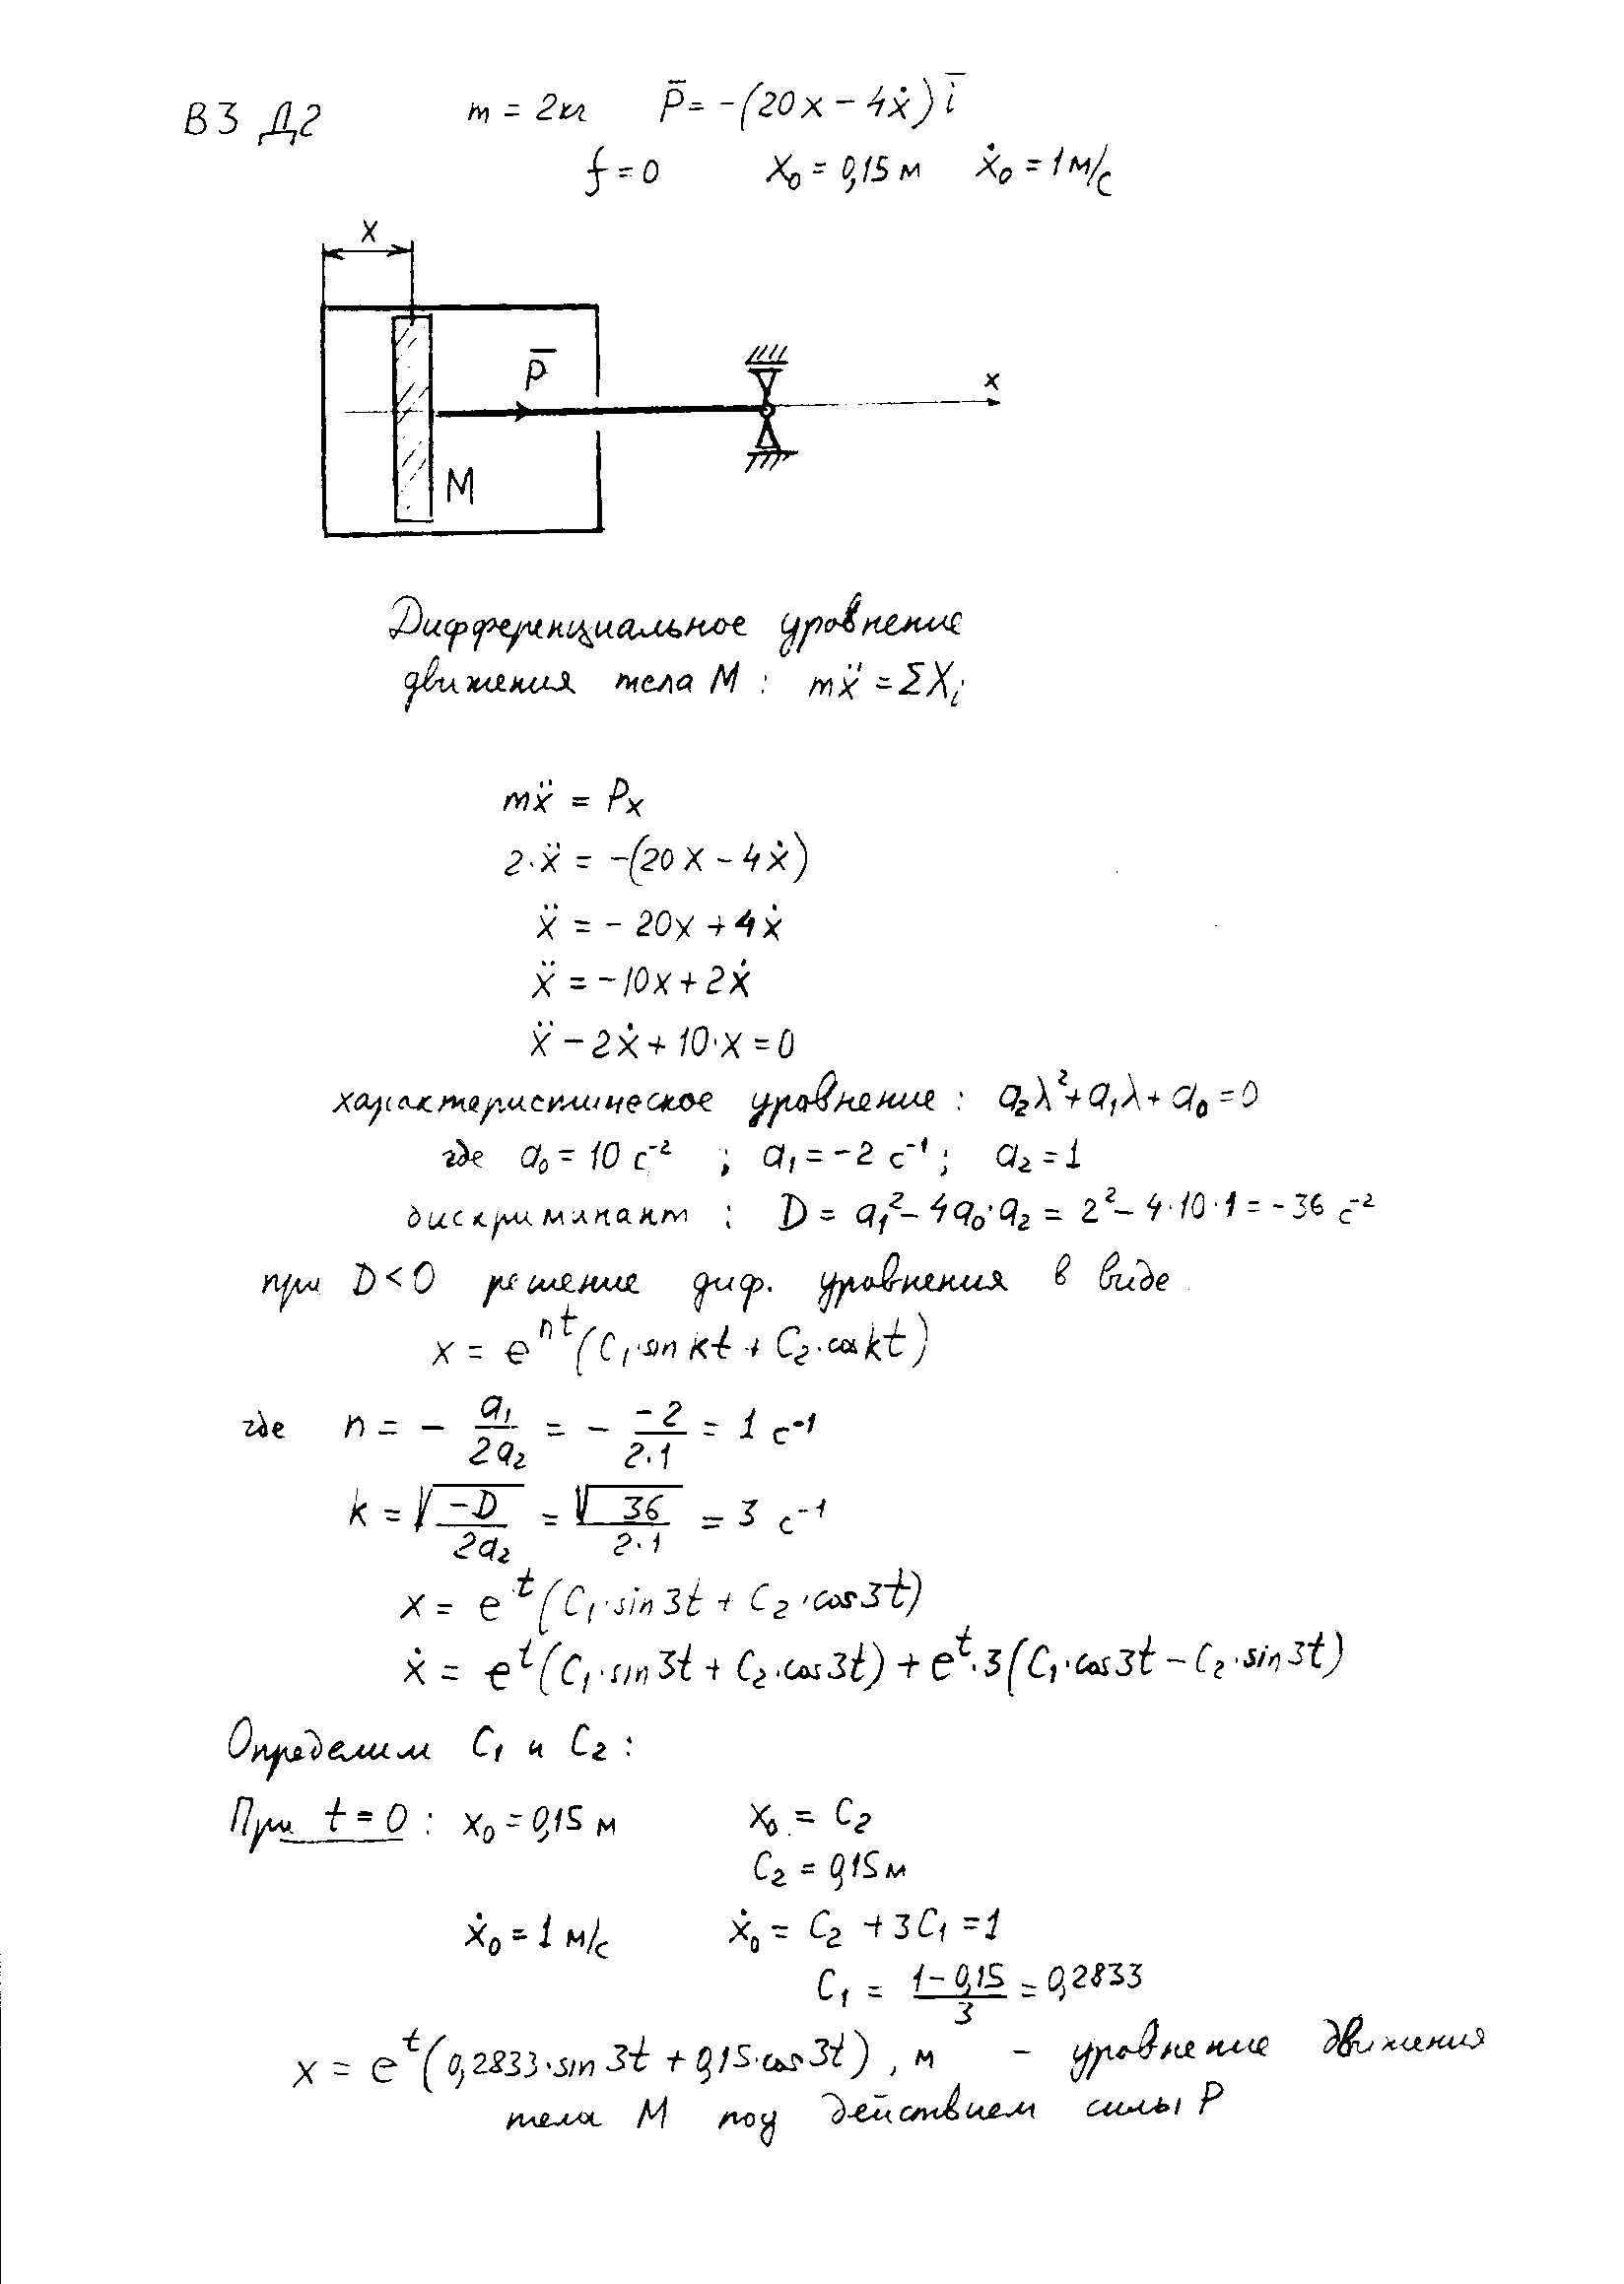 В3 Д2 m = 2кг P̄ = -(20x - 4ẋ) ī
f = 0 x₀ = 0,15 м ẋ₀ = 1 м/с
x
P̄
x
M
Дифференциальное уровнение
движения тела М : mẍ = ΣXᵢ
mẍ = Pₓ
2·ẍ = -(20x - 4ẋ)
ẍ = - 20x + 4ẋ
ẍ = -10x + 2ẋ
ẍ - 2ẋ + 10·x = 0
характеристическое уровнение : a₂λ² + a₁λ + a₀ = 0
где a₀ = 10 с⁻² ; a₁ = -2 с⁻¹ ; a₂ = 1
дискриминант : D = a₁² - 4a₀·a₂ = 2² - 4·10·1 = -36 с⁻²
при D < 0 решение диф. уровнения в виде
x = e^{nt} (C₁·sin kt + C₂·cos kt)
где n = - a₁/2a₂ = - -2/2·1 = 1 с⁻¹
k = √-D/2a₂ = √36/2·1 = 3 с⁻¹
x = e^t (C₁·sin3t + C₂·cos3t)
ẋ = e^t (C₁·sin3t + C₂·cos3t) + e^t·3(C₁·cos3t - C₂·sin3t)
Определим C₁ и C₂ :
При t = 0 : x₀ = 0,15 м x₀ = C₂
C₂ = 0,15м
ẋ₀ = 1 м/с ẋ₀ = C₂ + 3C₁ = 1
C₁ = 1 - 0,15/3 = 0,2833
x = e^t (0,2833·sin 3t + 0,15·cos 3t) , м - уровнение движения
тела М под действием силы P